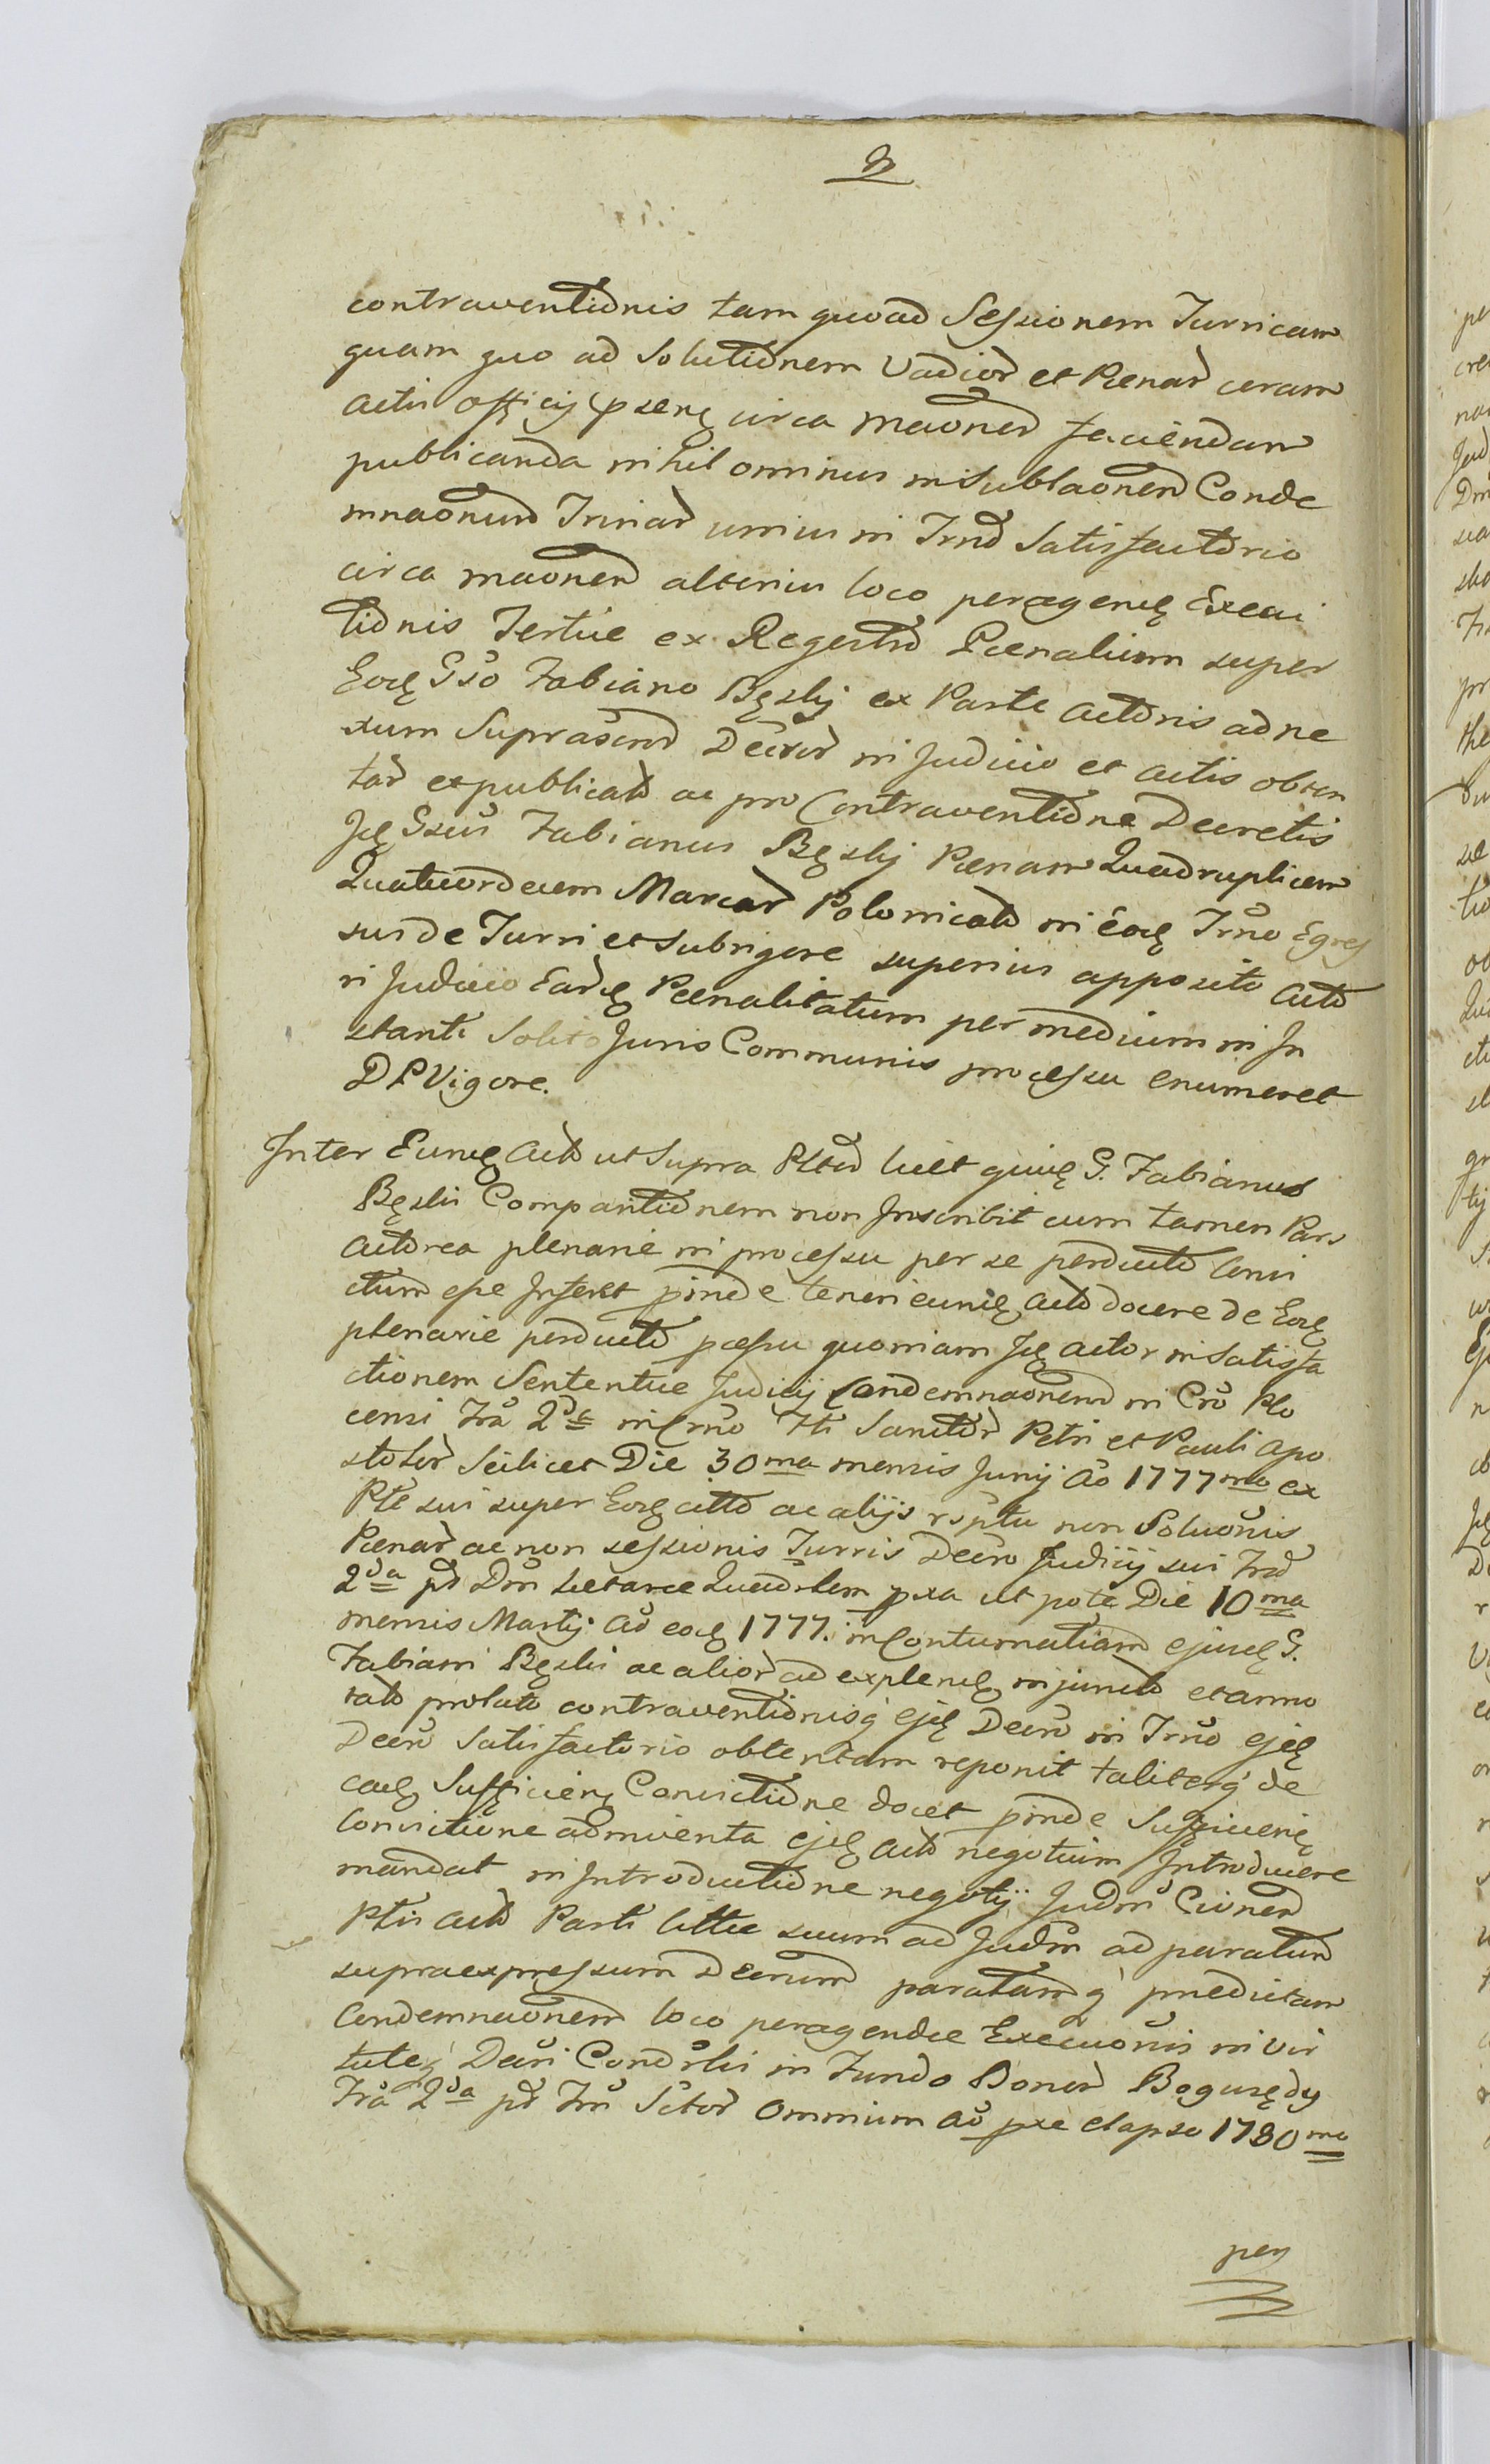 contraventionis tam quoad Sessionem Turricam
quam quo ad Solutionem Vadior et Paenar coram
actis officij psenę circa maonem faciendam
publicanda nihil ominus in Sublaonem Conde
mnaonum Trinar unius in Trno Satisfactorio
circa maonem alterius loco peragenę Execu
tionis Tertiæ ex Regestro Pænalium super
Eodę Gso Fabiano Bęski ex Parte actoris adne
xum Suprascrip Decror in Judicio et actis obten
tar et publicat ac pro Contraventione Decretis
Idę Gsus Fabianus Bęski Pænam Quadruplicem
Quatuordecem Marcar Polonicali in eodę Trno Egres
sus de Turri et Subrigore superius apposito acto
ri Judicio Eardę Pænalitatum per medium in In
stanti Solito Juris Communis processu enumeret
DPVigore.
Inter Eundę act ut Supra Pltd licet quidę G. Fabianus
Bęski Comparitionem non Inscribit cum tamen Pars
actorea plenarie in processu per se perducto Convi
ctum esse Inferet pinde teneri eundę acto docere de Eodę
plenarie perducto pcessu quoniam Idę actor in Satisfa
ctionem Sententiæ Judicij Condemnaonem in Cro Plo
censi fra 2da in Crno fti Sanctor Petri et Pauli Apo
stolor Scilicet Die 30ma mensis Junij Ao 1777mo ex
Pte sui super Eodę citto ac alijs rsptu non Soluonis
Pænar ac non sessionis Turris Decro Judicij sui frd
2da pt Dm Lætare Quadrlem pxa ut pote Die 10ma
mensis Martij Ao eodę 1777. in Contumatiam ejusdę G.
Fabiani Bęski ac alior ad explendę injuncto et anno
tato prolato contraventionisq ejdę Decro in Trno ejdę
Decro Satisfactorio obtentam reponit taliterq de
eadę Sufficienę Convictione docet pinde Sufficienę
Convictione adinventa ejdę acto negotium Introducere
mandat in Introductione negotij Judm Cionem
Ptis acto Parti Cittæ suum ad Judm ad paratum
supraexpressum Decrum paratamq prædictam
Condemnaonem loco peragendæ Execuonis in vir
tuteq Decri Condrlis in Fundo Bonor Bogurzędy
fra 2da pt fm Sctor Omnium Ao pxe elapso 1780mo
per